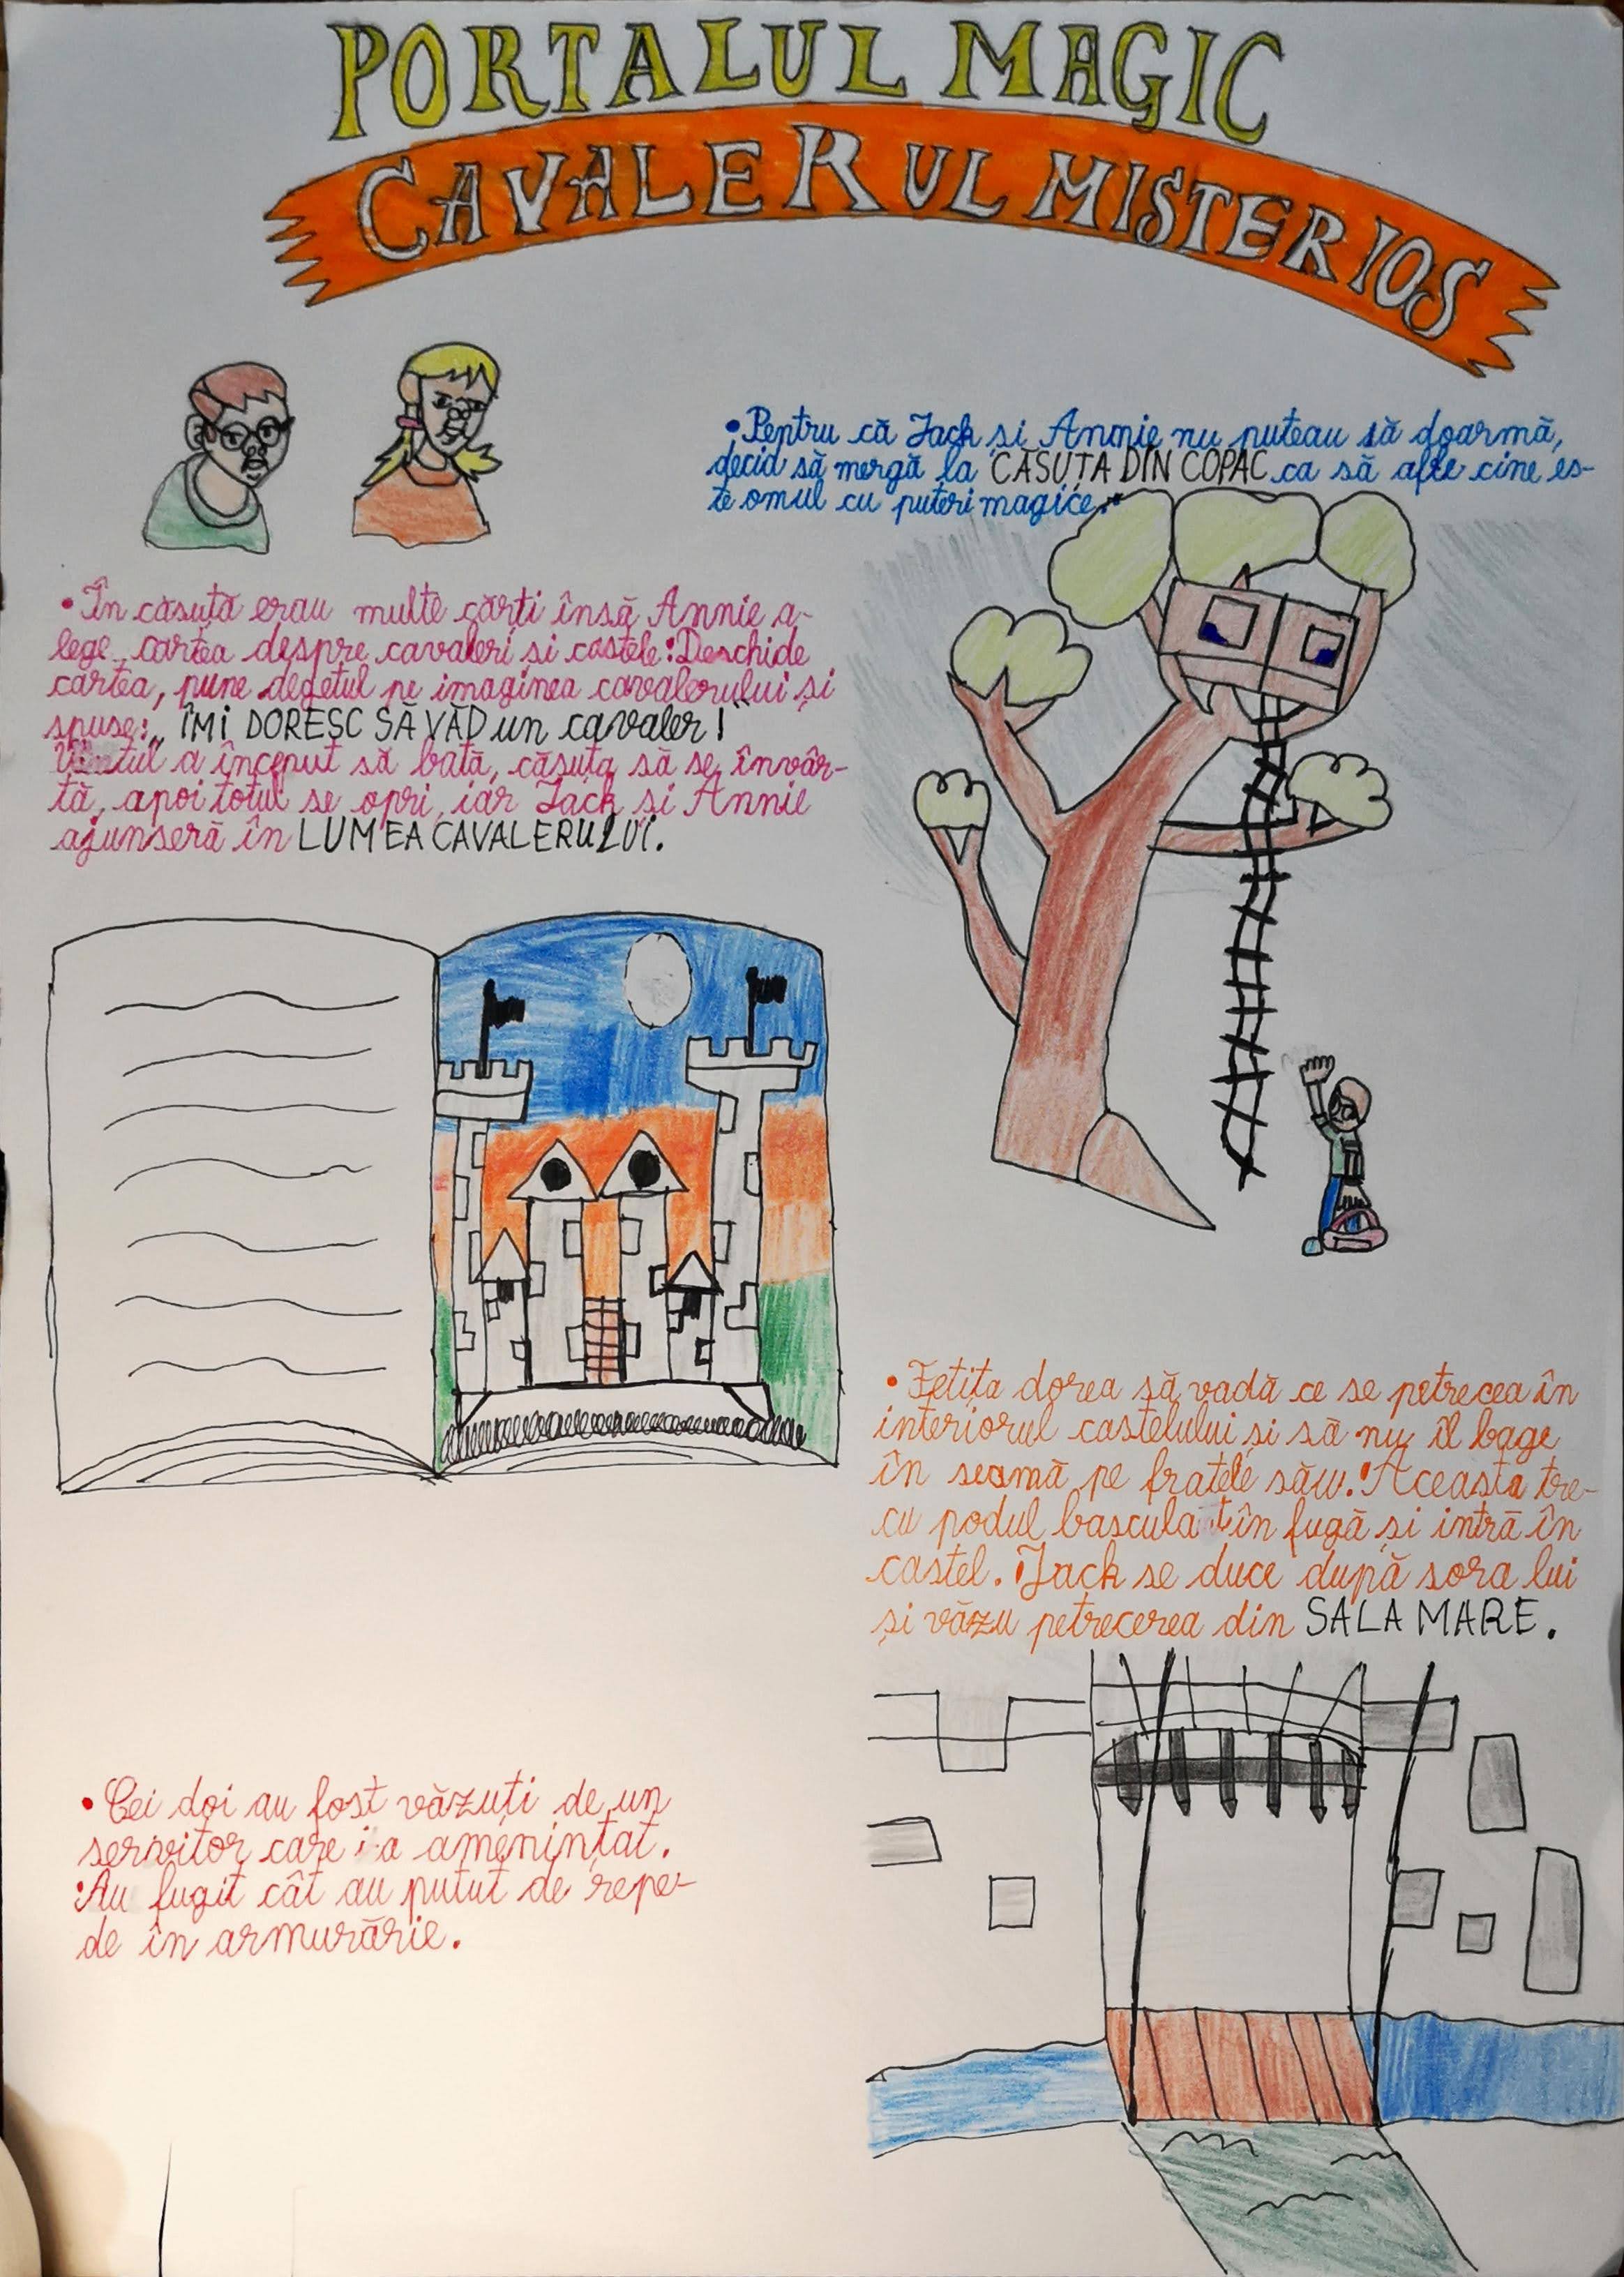 PORTALUL MAGIC
CAVALERUL MISTERIOS
•Pentru că Jack și Annie nu puteau să doarmă,
decid să mergă la CĂSUȚA DIN COPAC ca să afle cine es-
te omul cu puteri magice.
•În căsuță erau multe cărți însă Annie a-
lege cartea despre cavaleri si castele. Deschide
cartea, pune degetul pe imaginea cavalerului și
spuse: „ÎMI DORESC SĂ VĂD un cavaler!"
Vântul a început să bată, căsuța să se învâr-
tă, apoi totul se opri, iar Jack și Annie
ajunseră în LUMEA CAVALERULUI.
•Fetița dorea să vadă ce se petrecea în
interiorul castelului și să nu îl bage
în seamă pe fratele său. Aceasta tre-
cu podul basculat în fugă și intră în
castel. Jack se duce după sora lui
și văzu petrecerea din SALA MARE.
•Cei doi au fost văzuți de un
servitor care i-a amenințat.
•Au fugit cât au putut de repe-
de în armurărie.